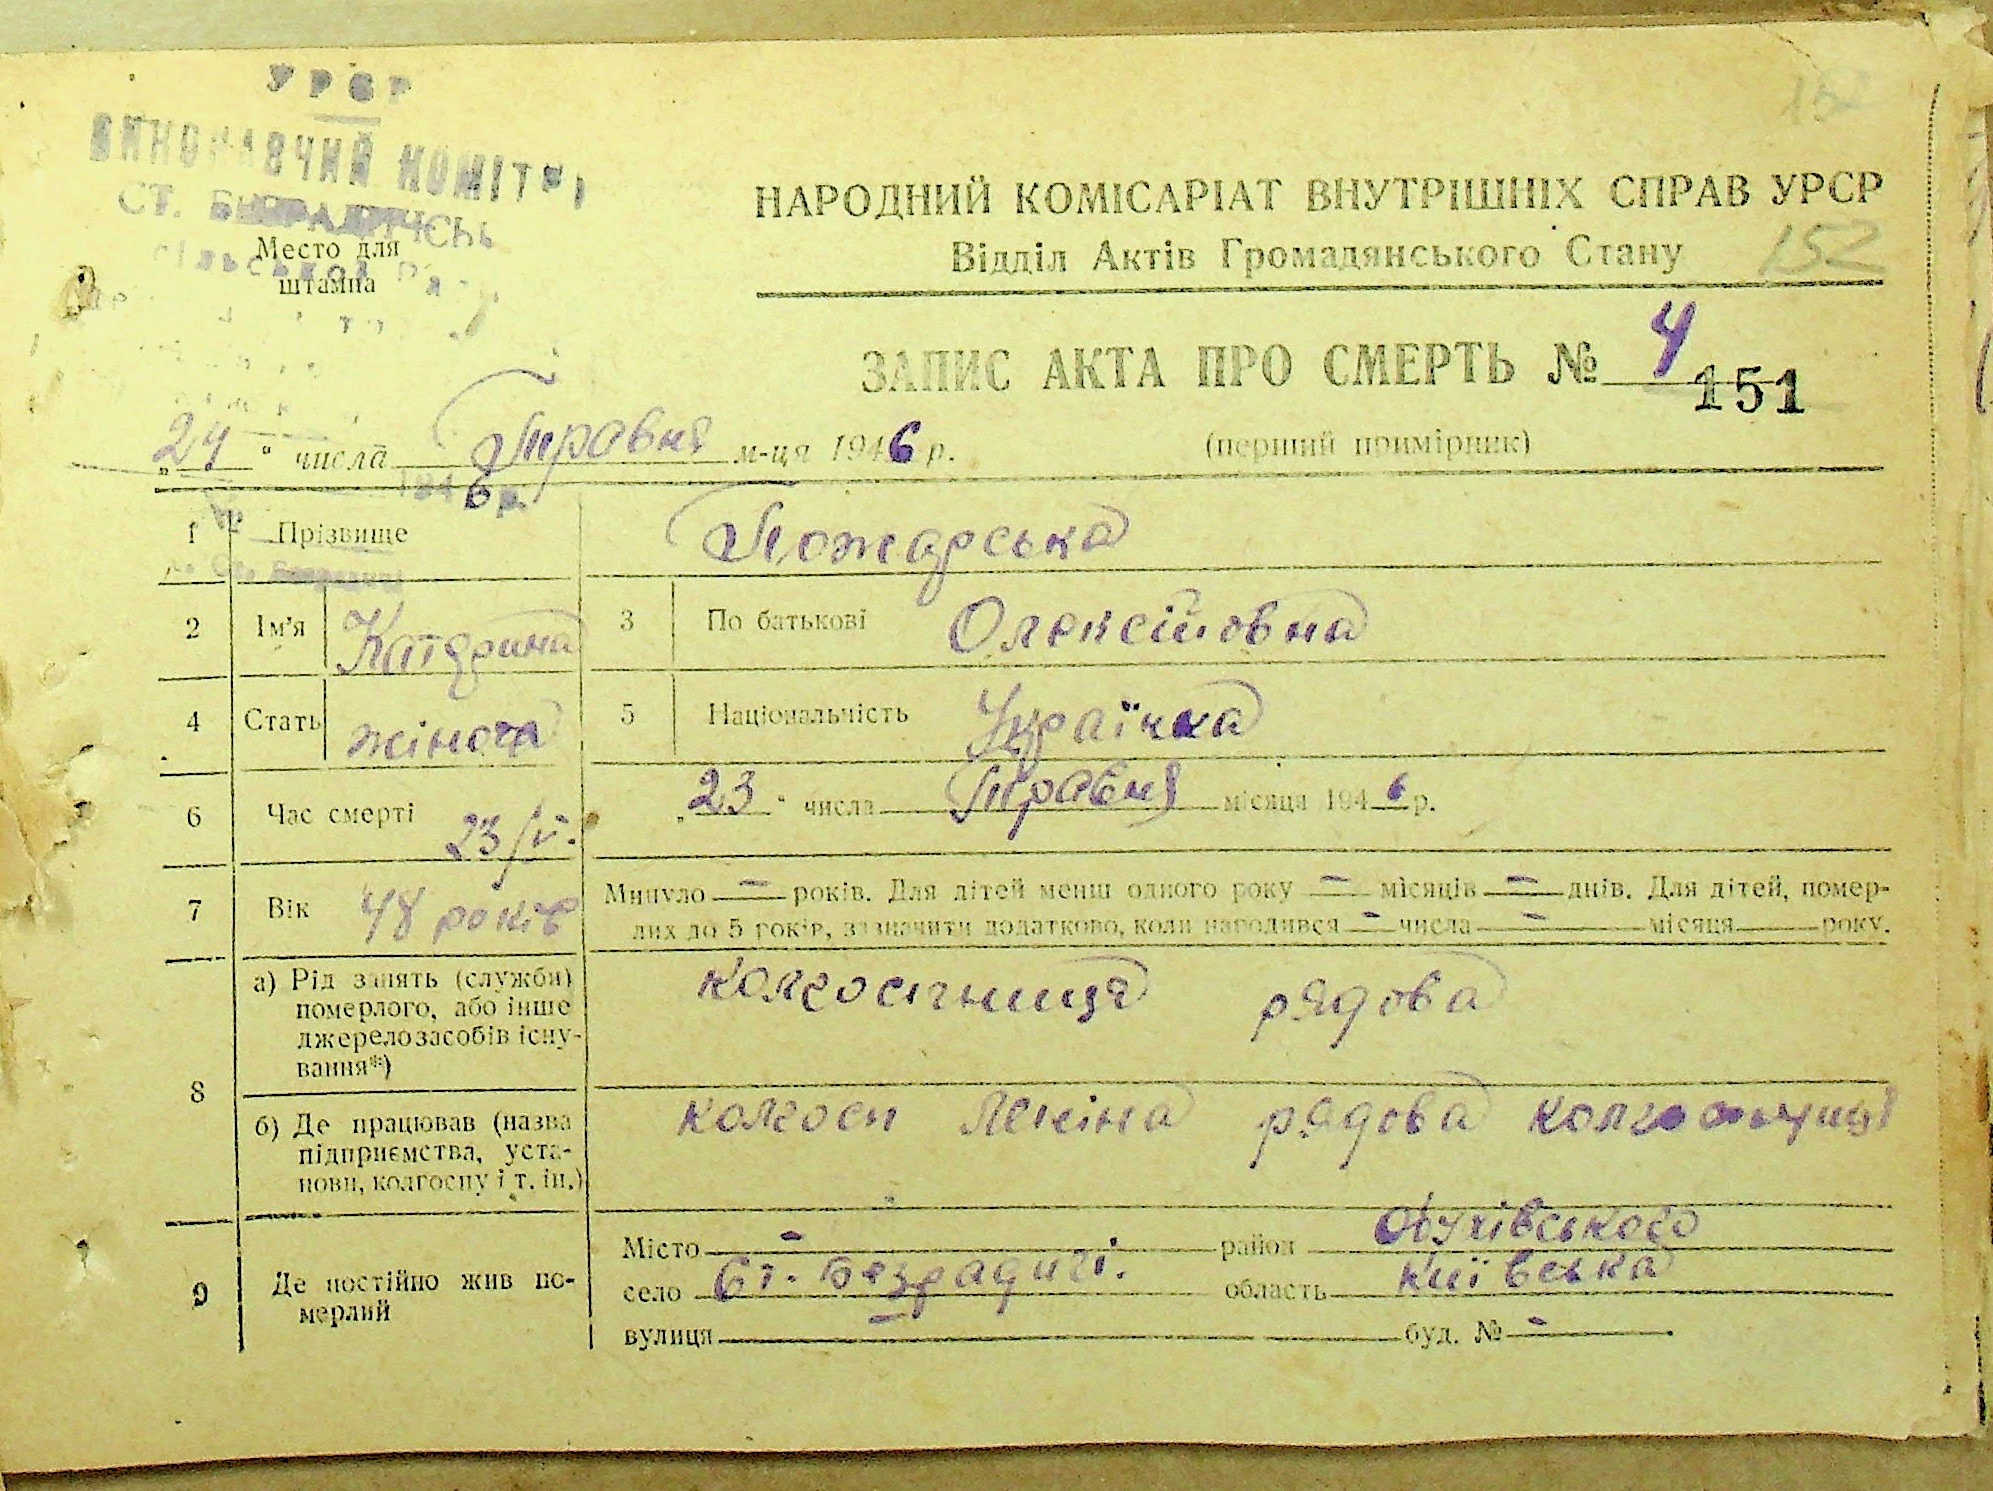 УРСР
ВИКОНАВЧИЙ КОМІТЕТ
СТ. БЕЗРАДИЧЄНЬ
Место для
сільської Ради
штампа
НАРОДНИЙ КОМІСАРІАТ ВНУТРІШНІХ СПРАВ УРСР
Відділ Актів Громадянського Стану 152
ЗАПИС АКТА ПРО СМЕРТЬ № 4
151
„24“ числа Травня м-ця 1946 р.
(перший примірник)
1946 р.
1 Прізвище Пожарська
2 Ім'я Катерина 3 По батькові Олексіївна
4 Стать жіноча 5 Національність Українка
6 Час смерті 23/V. „23“ числа Травня місяця 1946 р.
7 Вік 48 років Минуло — років. Для дітей менш одного року — місяців — днів. Для дітей, помер-
лих до 5 років, зазначити додатково, коли народився — числа — місяця року.
8 а) Рід занять (служби) колгоспниця рядова
померлого, або інше
джерело засобів існу-
вання*)
б) Де працював (назва колгосп Леніна рядова колгоспниця
підприємства, уста-
нови, колгоспу і т. ін.)
9 Де постійно жив по-
мерлий
Місто — район Обухівського
село Ст. Безрадичі. область Київська
вулиця буд. № —